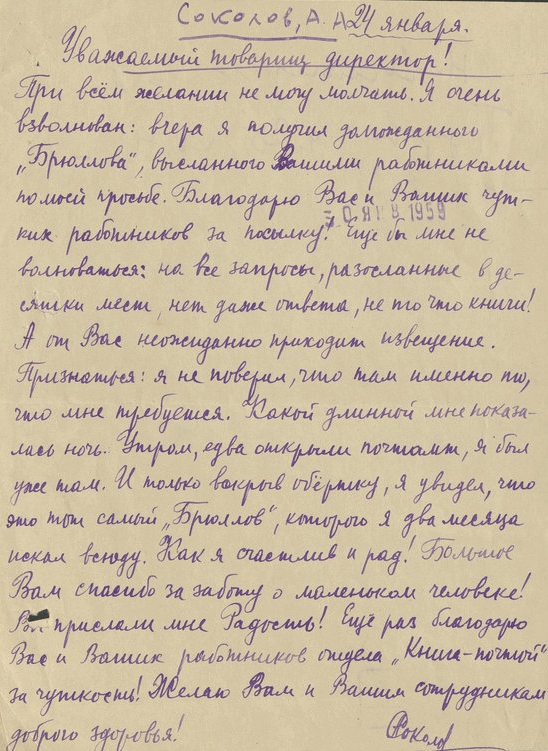 Соколов, А. А. 24 января.
Уважаемый товарищ директор!
При всём желании не могу молчать. Я очень
взволнован: вчера я получил долгожданного
„Брюллова“, высланного Вашими работниками
по моей просьбе. Благодарю Вас и Ваших чут-
30 ЯНВ 1959
ких работников за посылку! Ещё бы мне не
волноваться: на все запросы, разосланные в де-
сятки мест, нет даже ответа, не то что книги!
А от Вас неожиданно приходит извещение.
Признаться: я не поверил, что там именно то,
что мне требуется. Какой длинной мне показа-
лась ночь. Утром, едва открыли почтамт, я был
уже там. И только вскрыв обёртку, я увидел, что
это тот самый „Брюллов“, которого я два месяца
искал всюду. Как я счастлив и рад! Большое
Вам спасибо за заботу о маленьком человеке!
Вы прислали мне Радость! Ещё раз благодарю
Вас и Ваших работников отдела „Книга-почтой“
за чуткость! Желаю Вам и Вашим сотрудникам
доброго здоровья! Соколов